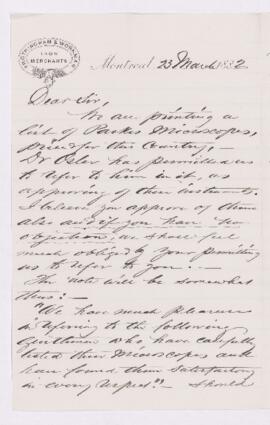 FROTHINGHAM & WORKMAN
IRON
MERCHANTS
Montreal 23 March 1882
Dear Sir,
We are printing a
list of Parkes Microscopes,
prices for this Country,—
Dr Osler has permitted us
to refer to him in it, as
approving of their instruments.
I believe you approve of them
also and if you have no
objections, we should feel
much obliged by your permitting
us to refer to you.—
The note will be somewhat
thus:—
"We have much pleasure
in referring to the following
gentlemen who have carefully
tested these Microscopes and
have found them Satisfactory
in every respect."— Should